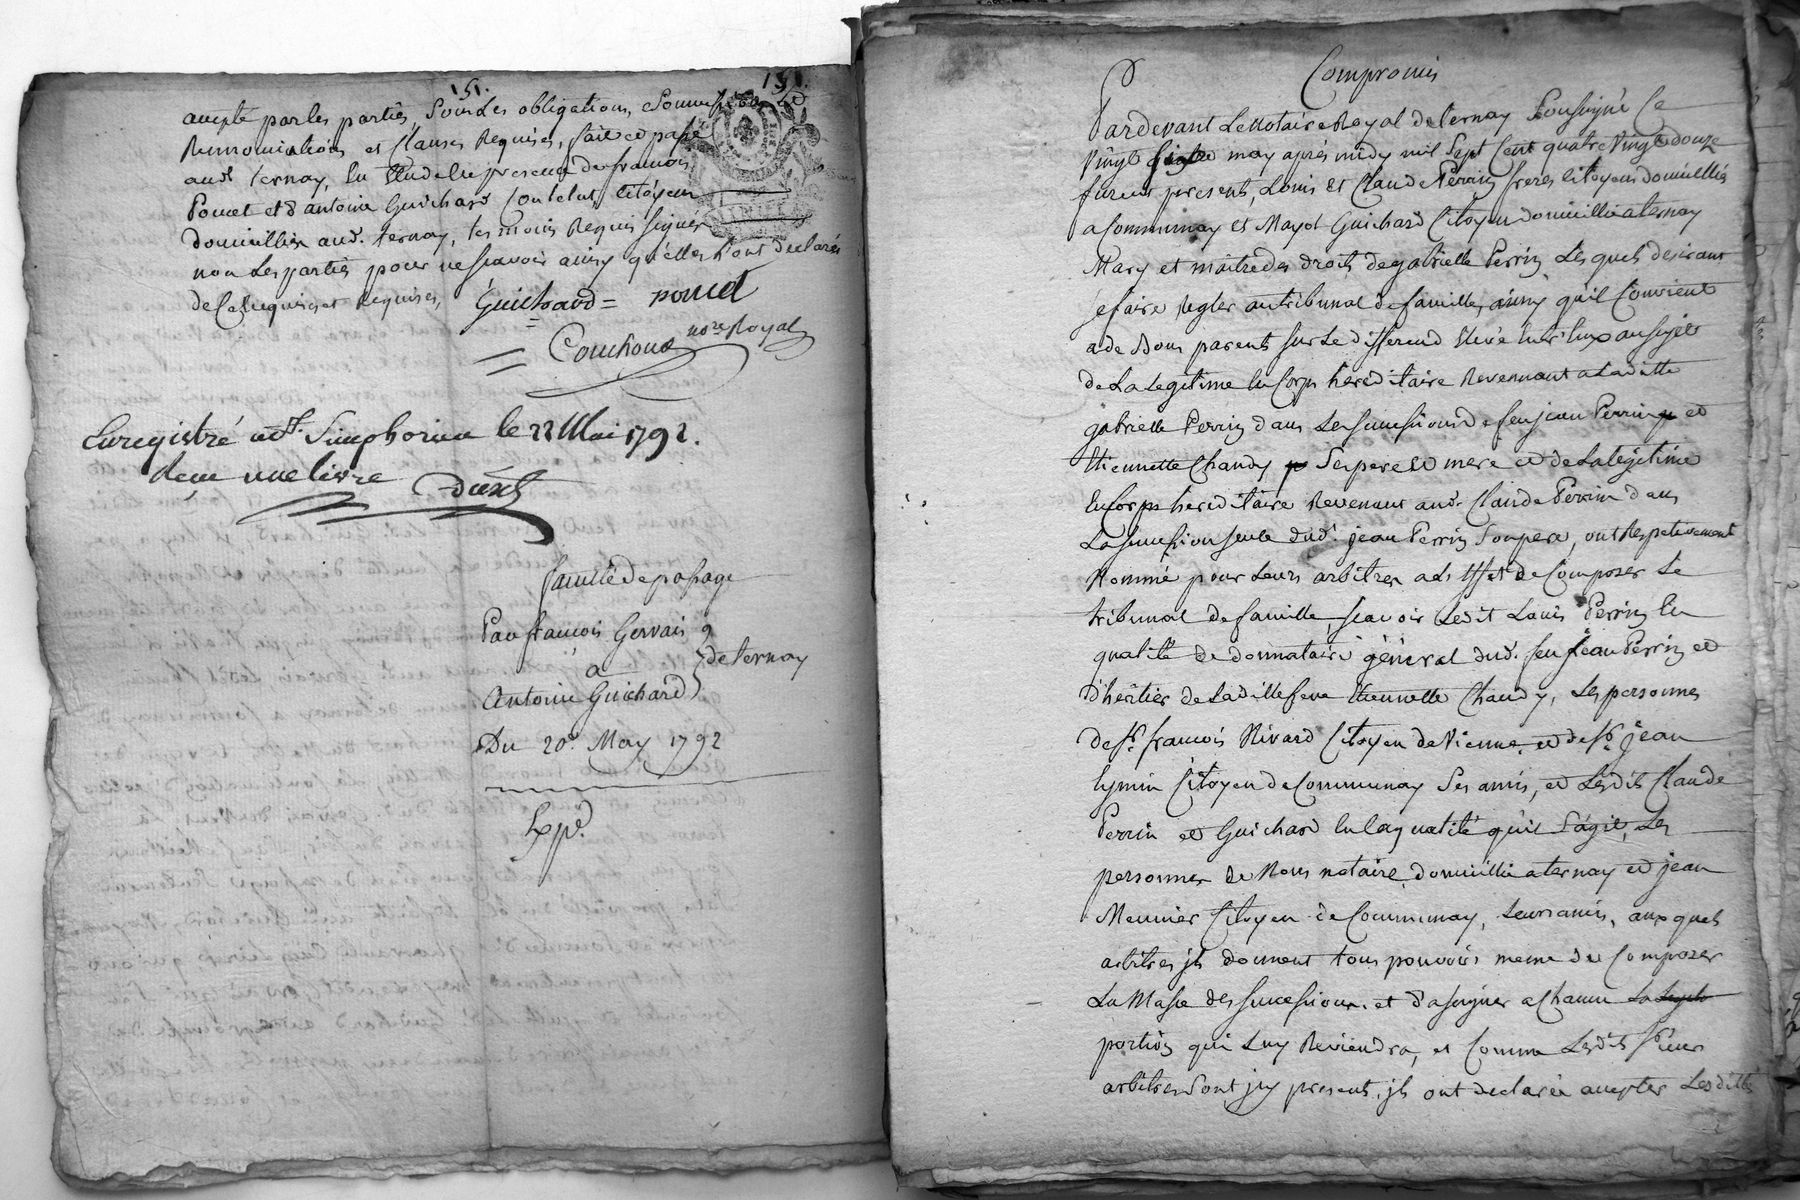 151.
151.
accepté par les parties, sous les obligations, soumissions et
Renonciations et clauses Requises, fait et passé
aud. ternay, En Etude En presence de francois
Poncet et d'antoine Guichard citoyens
domicilliés aud. ternay, temoins Requis signés
non les parties pour ne scavoir ainsy qu'elles l'ont declaré
de ce enquises et Requises,
Guichard = poncet
Couchoud nore Royal
Enregistré a St. Simphorien le 22 Mai 1792.
Reçu une livre
faculté de passage
Par francois Gervais
a
de ternay
Antoine Guichard
Du 20e May 1792
Expé.
Compromis
Pardevant Le Notaire Royal de ternay soussigné Ce
Vingt may après midy mil sept Cent quatre Vingt douze
furent presents, Louis et Claude Perrin freres citoyens domicilliés
a Communay et Mayol Guichard Citoyen domicillié a ternay
Mary et maitre des droits de gabrielle Perrin Lesquels desirant
se faire Regler au tribunal de famille, ainsy qu'il Convient
a de Bons parents sur Le differend Elevé Entr'Eux au sujet
de La Legitime En Corps hereditaire Revenant a Laditte
gabrielle Perrin dans Les successions de feu jean Perrin et
Etiennette Chandy Ses pere et mere et de La legitime
En Corps hereditaire Revenant aud. Claude Perrin dans
La succession seule dud. jean Perrin Son pere, ont Respectivement
Nommé pour Leurs arbitres a L'Effet de Composer Le
tribunal de famille, scavoir Ledit Louis Perrin En
qualité de donnataire général dud. feu jean Perrin et
d'héritier de Laditte feue Etiennette Chandy, Les personnes
de Sr. francois Rivard Citoyen de Vienne et de Sr. jean
Eymin Citoyen de Communay Ses amis, et Lesdits Claude
Perrin et Guichard En la qualité qu'il s'agit, Les
personnes de Nous notaire domicillié a ternay et jean
Meunier Citoyen de Communay, Leurs amis, auxquels
arbitres jls donnent tous pouvoirs meme de Composer
La Masse des successions et d'assigner a Chacun
portion qui Luy Reviendra, et Comme Lesdits sieurs
arbitres sont jcy presents, jls ont declaré accepter Lesdits